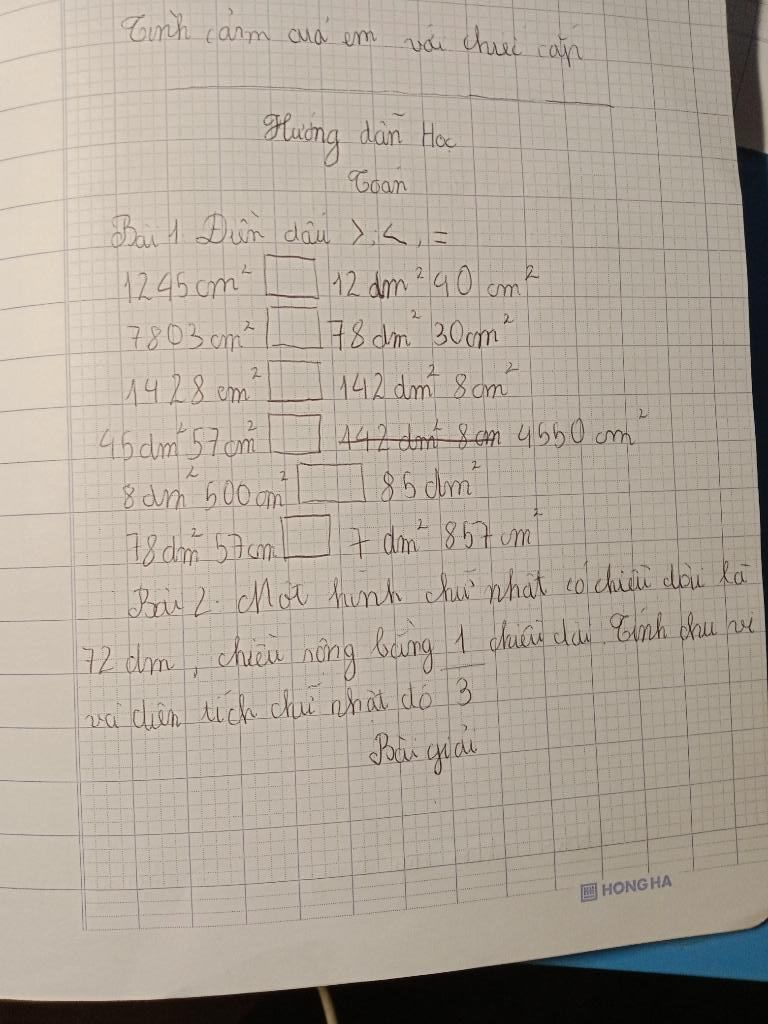 Tình cảm cuả em với chue cặn
Hướng dẫn Học
Toán
Bài 1. Điền dấu >, <, =
1245cm² □ 12 dm² 40 cm²
7803 cm² □ 78 dm² 30cm²
1428 cm² □ 142 dm² 8cm²
45dm² 57cm² □ 142 dm² 8cm 4550 cm²
8dm² 500cm² □ 85 dm²
78dm² 57cm □ 7 dm² 857 cm²
Bài 2. Một hình chữ nhật có chiều dài là
72 dm, chiều rông bằng 1/3 chiều dài. Tính chu vi
và diện tích chữ nhật đó
Bài giải
HONG HA